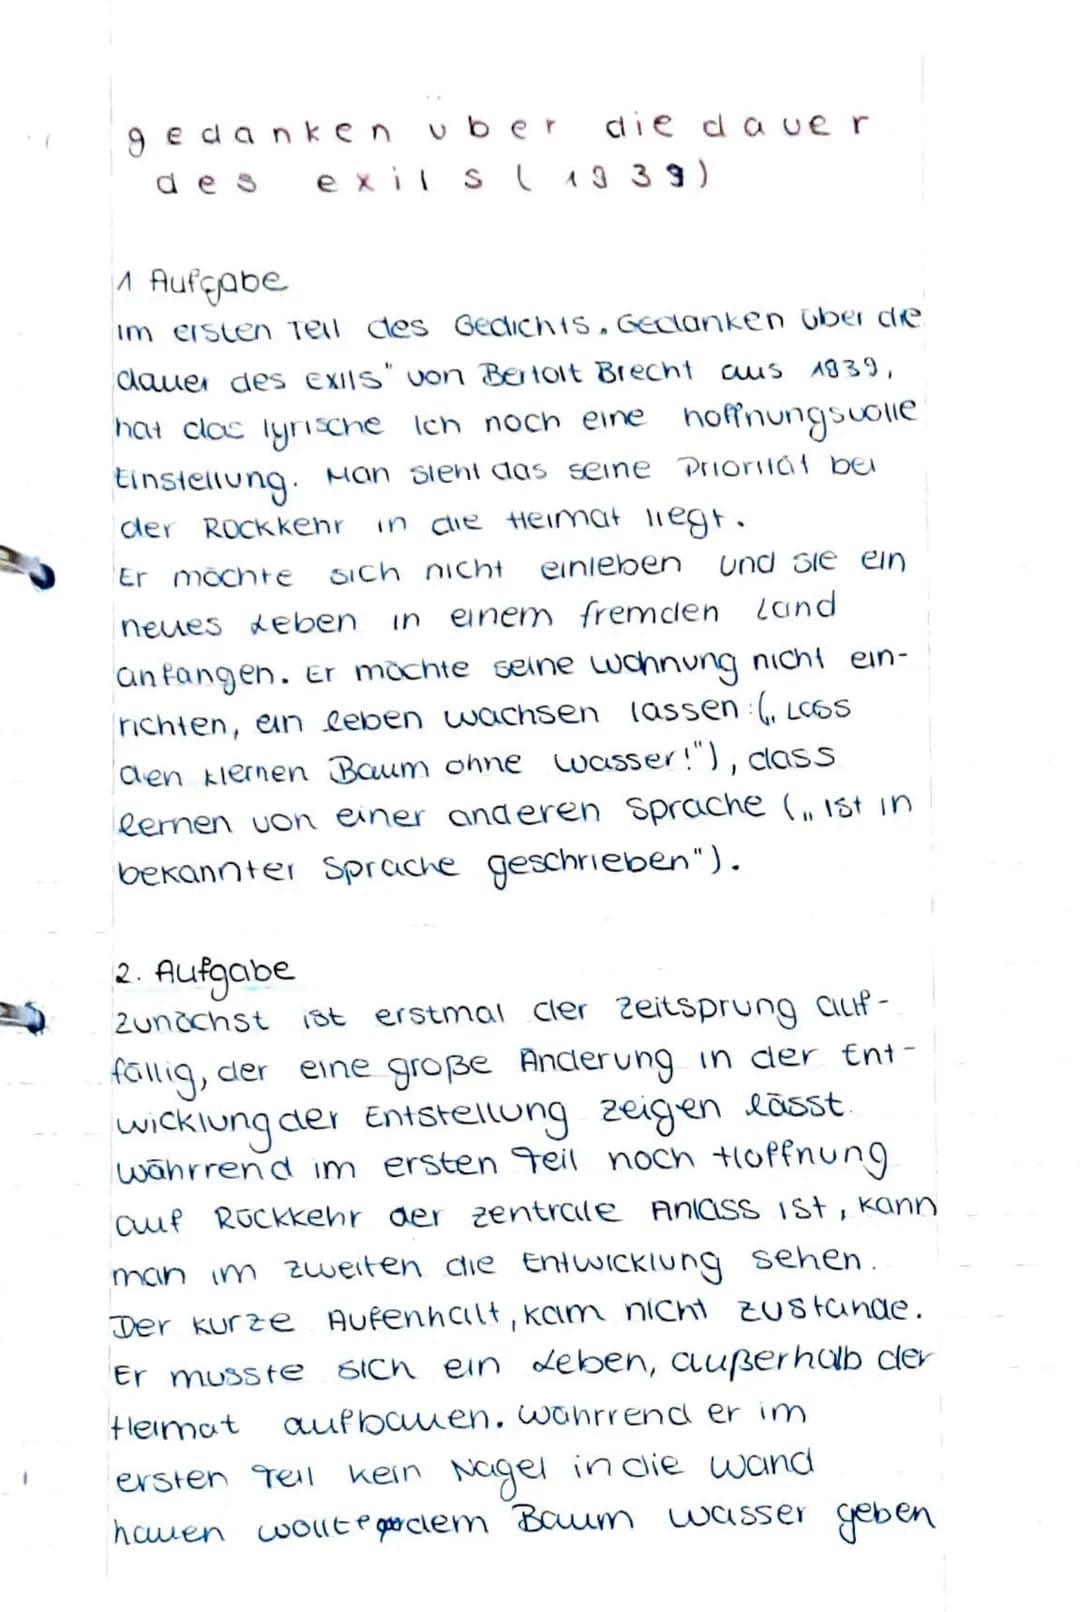 gedanken über die dauer
des exils (1939)
1 Aufgabe
im ersten Teil des Gedichts „Gedanken über die
dauer des exils" von Bertolt Brecht aus 1939,
hat das lyrische Ich noch eine hoffnungsvolle
Einstellung. Man sieht das seine Priorität bei
der Rückkehr in die Heimat liegt.
Er möchte sich nicht einleben und sie ein
neues Leben in einem fremden Land
anfangen. Er möchte seine Wohnung nicht ein-
richten, ein leben wachsen lassen: („Lass
den kleinen Baum ohne Wasser!"), dass
lernen von einer anderen Sprache („ist in
bekannter Sprache geschrieben").
2. Aufgabe
Zunächst ist erstmal der Zeitsprung auf-
fällig, der eine große Änderung in der Ent-
wicklung der Entstellung zeigen lässt.
währrend im ersten Teil noch Hoffnung
auf Rückkehr der zentrale Anlass ist, kann
man im zweiten die Entwicklung sehen.
Der kurze Aufenhalt, kam nicht zustande.
Er musste sich ein Leben, außerhalb der
Heimat aufbauen. währrend er im
ersten Teil kein Nagel in die wand
hauen wollte dem Baum wasser geben